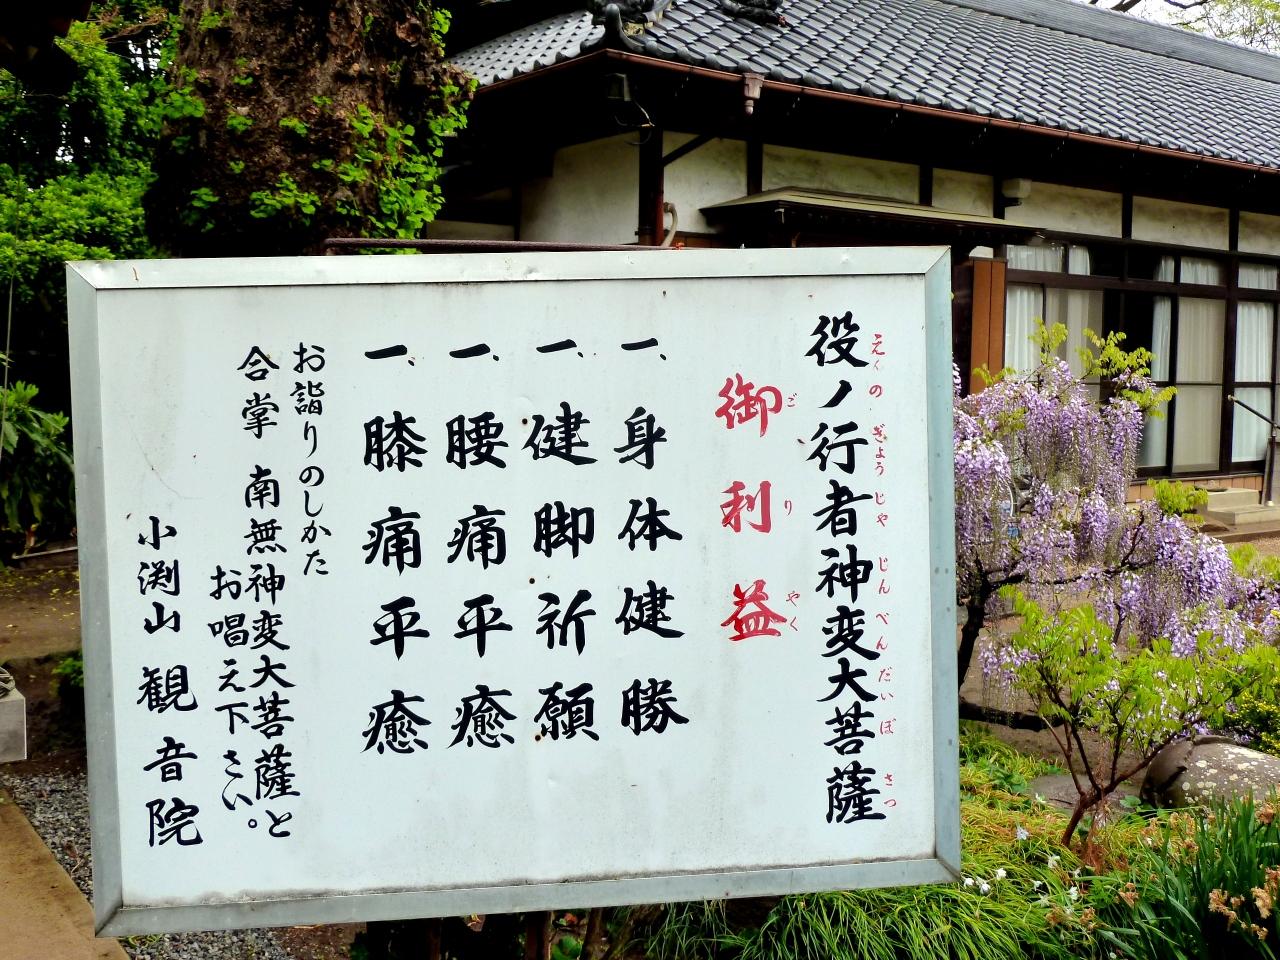 役ノ行者神変大菩薩
えんのぎょうじゃじんべんだいぼさつ
御利益
ごりやく
一、身体健勝
一、健脚祈願
一、腰痛平癒
一、膝痛平癒
お詣りのしかた
合掌 南無神変大菩薩と
お唱え下さい。
小渕山 観音院